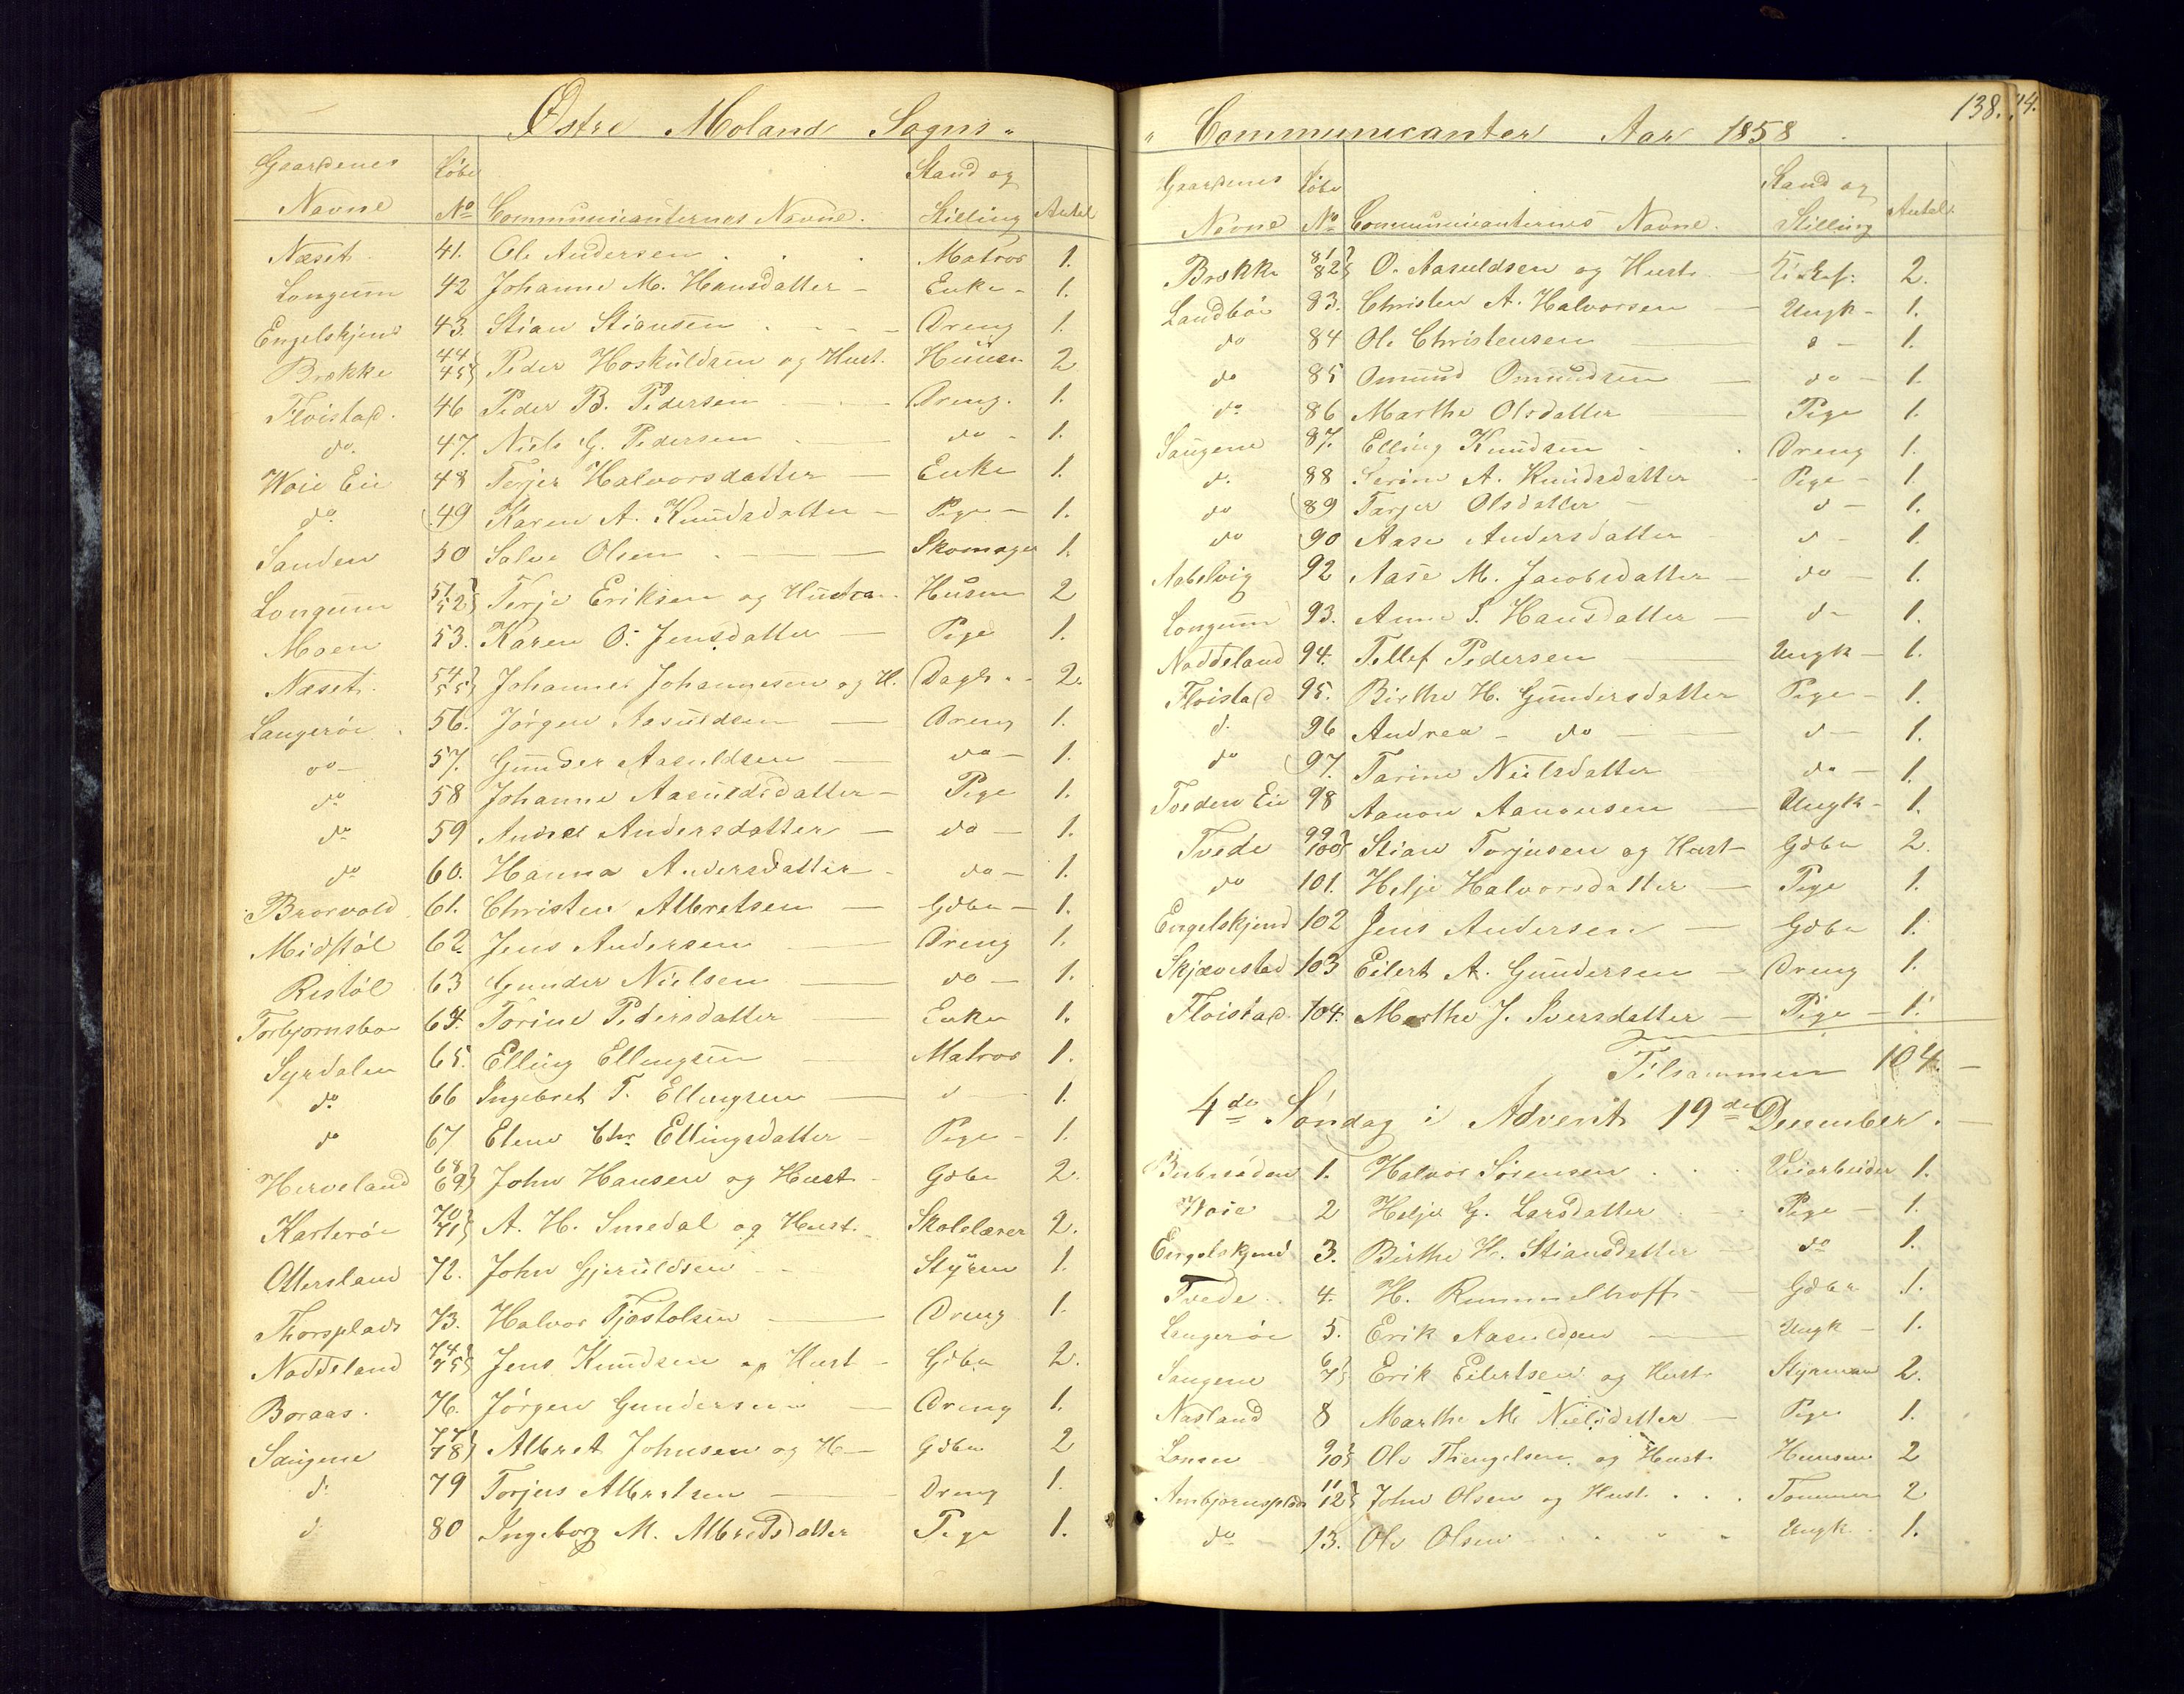 Østre Moland Sogns "
Gaardenes Navne Løbe No Communicanternes Navne. Stand og Stilling Antal
Næset 41. Ole Andersen Matros 1.
Longum 42 Johanne M. Hansdatter - Enke - 1.
Engelskjend 43 Stian Stiansen Dreng 1.
Brække 44 45 Peder Hoskuldsen og Hust. Huusm 2
Floistad. 46 Peder B. Pedersen Dreng. 1.
do. 47. Niels G. Pedersen do - 1.
Woie Eie 48 Terjer Halvorsdatter - Enke 1.
do. 49 Karen A. Knudsdatter - Pige - 1.
Sanden 50 Salve Olsen Skomager 1.
Longum 51. 52 Terje Eriksen og Hustru Husm 2
Moen 53. Karen O. Jensdatter - Pige 1.
Næset. 54 55 Johannes Johannesen og H. Dagl. - 2.
Langerøe 56. Jörgen Aasuldsen - Dreng 1.
do - 57. Gunder Aasuldsen - do - 1.
do 58 Johanne Aasuldsdatter - Pige 1.
do 59 Andrea Andersdatter - do - 1.
do 60. Hanna Andersdatter - do - 1.
Brorvold 61. Christen Albretsen - Gdbr - 1.
Midstöl 62. Jens Andersen - Dreng 1.
Ristöl 63 Gunder Nielsen - do - 1.
Torbjornsboe 64. Torine Pedersdatter - Enke 1.
Syrdalen 65. Elling Ellingsen - Matros 1.
do. 66 Ingebret T. Ellingsen - d - 1.
do 67 Elene Chr. Ellingsdatter - Pige - 1.
Herveland 68 69 John Hansen og Hust - Gdbr 2.
Karterøe 70 71 A. H. Smedal og Hust. Skolelærer 2.
Ottersland 72. John Gjeruldsen - Styrm 1.
Thorsplads 73. Halvor Tjøstolsen - Dreng 1.
Noddeland 74 75 Jens Knudsen og Hust - Gdbr 2.
Boraas. 76. Jörgen Gundersen - Dreng 1.
Saugene 77 78 Albret Johnsen og H - Gdbr 2
d. 79 Torjus Albretsen - Dreng 1.
d. 80 Ingeborg M. Albretsdatter Pige 1.
" Communicanter Aar 1858 138.
Gaardenes Navne Løbe No Communicanternes Navne. Stand og Stilling Antal
Brække 81 82 O. Aasuldsen og Hust. 2.
Landböe 83. Christen A. Halvorsen - Ungk - 1.
do 84 Ole Christensen - d - 1.
do 85 Omund Omundsen - do - 1.
do 86 Marthe Olsdatter Pige 1.
Saugene 87. Elling Knudsen Dreng 1.
d. 88 Serine A. Knudsdatter - Pige - 1.
do 89 Tarjer Olsdatter - d - 1.
do 90 Aase Andersdatter - d - 1.
Nabelvig 92 Aase M. Jacobsdatter - do - 1.
Longum 93. Anne S. Hansdatter - do 1.
Noddeland 94. Tellef Pedersen - Ungk - 1.
Floistad 95. Birthe H. Gundersdatter Pige - 1.
d. 96 Andrea - do - d - 1.
do 97. Tarine Nielsdatter do - 1.
Tveden Eie 98 Aanon Aanonsen - Ungk - 1.
Tvede 99 100 Stian Torjusen og Hust - Gdbr 2.
do 101. Helje Halvorsdatter - Pige 1.
Engelskjend 102 Jens Andersen - Gdbr 1.
Skjævestad 103 Eilert A. Gundersen - Dreng 1.
Floistad. 104. Marthe J. Iversdatter - Pige - 1.
Tilsammen 104. -
4de Söndag i Advent 19de December. -
1. Halvor Sörensen Veiarbeider 1.
Woie 2 Helje G. Larsdatter Pige - 1.
Engelskjend 3. Birthe H. Stiansdatter - do 1.
Tvede. 4. H. Rummelhoff - Gdbr 1.
Langerøe 5. Erik Aasuldsen - Ungk - 1.
Saugene 6 7 Erik Eilertsen og Hust. Styrman 2.
Nasland 8 Marthe M. Nielsdatter - Pige 1.
9 10 Ole Thengelsen og Hust. Huusm 2
Ambjornsplads 11 12 John Olsen og Hust. Tommer 2
do 13. Ole Olsen Ungk. 1.